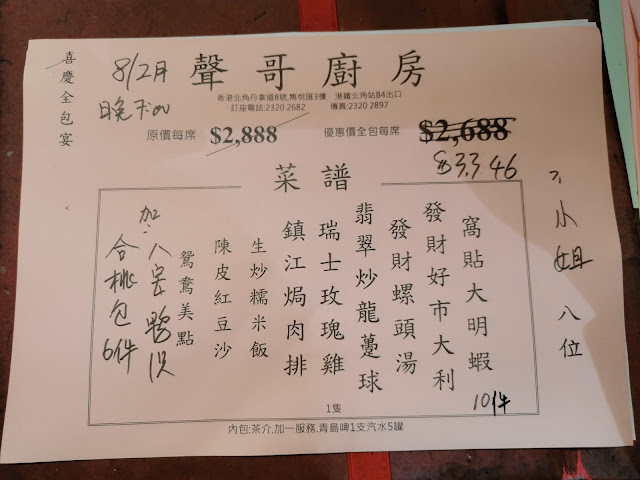 喜慶全包宴
8/2月
晚 7:00
聲哥廚房
香港北角丹拿道8號,雋悅匯3樓 港鐵北角站B4出口
訂座電話:2320 2682 傳真:2320 2897
原價每席 $2,888 優惠價全包每席 $2,688
$3346
菜譜
小姐 八位
窩貼大明蝦
10件
發財好市大利
發財螺頭湯
翡翠炒龍躉球
瑞士玫瑰雞
1隻
鎮江焗肉排
生炒糯米飯
陳皮紅豆沙
鴛鴦美點
加:八宝鴨1只
合桃包6件
內包:茶介,加一服務,青島啤1支汽水5罐